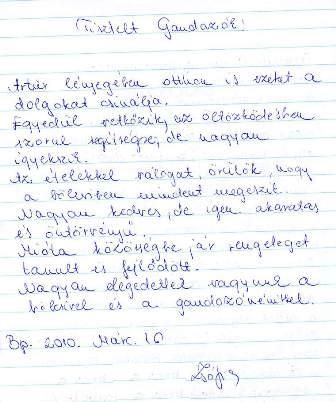 Tisztelt Gondozók!
Artúr lényegében otthon is ezeket a
dolgokat csinálja.
Egyedül vetkőzik, az öltözködésben
szorul segítségre, de nagyon
igyekszik.
Az ételekkel válogat, örülök, hogy
a bölcsiben mindent megeszik.
Nagyon kedves, de igen akaratos
és öntörvényű.
Mióta közösségbe jár rengeteget
tanult és fejlődött.
Nagyon elégedettek vagyunk a
bölcsivel és a gondozónénikkel.
Bp. 2010. Márc. 16